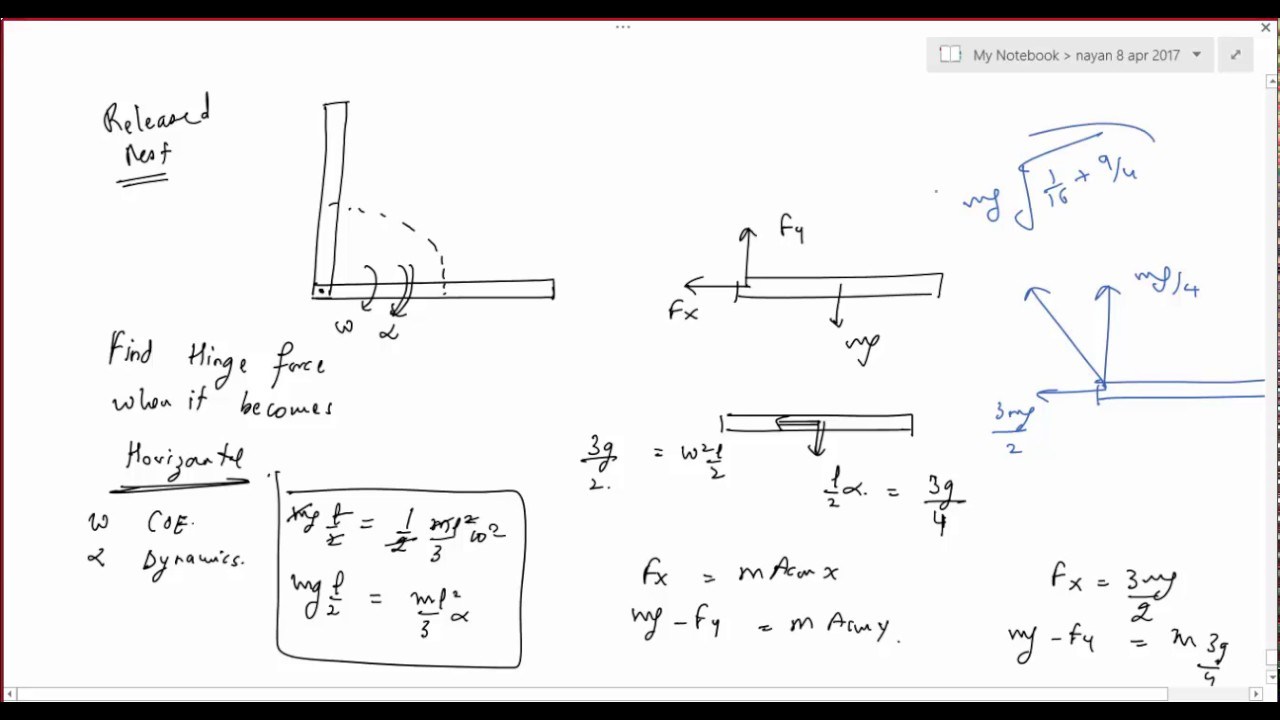 My Notebook > nayan 8 apr 2017
Released
Rest
ω α
Find Hinge force
when it becomes
Horizontal
ω COE.
α Dynamics.
mg l/2 = 1/2 ml²/3 ω²
mg l/2 = ml²/3 α
Fy
Fx
mg
3g/2. = ω² l/2
l/2 α. = 3g/4
Fx = m Acm x
mg - Fy = m Acm y.
mg √(1/16 + 9/4)
mg/4
3mg/2
Fx = 3mg/2
mg - Fy = m 3g/4